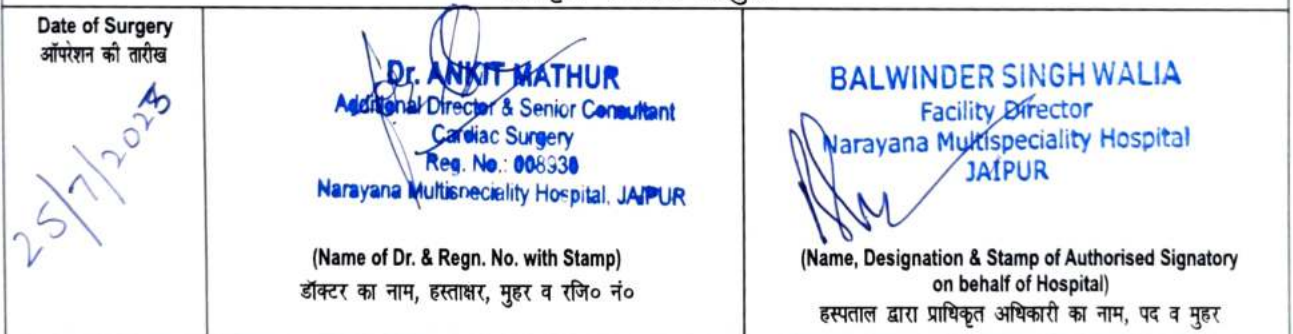 Date of Surgery
ऑपरेशन की तारीख
25/7/2025
Dr. ANKIT MATHUR
Additional Director & Senior Consultant
Cardiac Surgery
Reg. No.: 008930
Narayana Multispeciality Hospital, JAIPUR
(Name of Dr. & Regn. No. with Stamp)
डॉक्टर का नाम, हस्ताक्षर, मुहर व रजि० नं०
BALWINDER SINGH WALIA
Facility Director
Narayana Multispeciality Hospital
JAIPUR
(Name, Designation & Stamp of Authorised Signatory
on behalf of Hospital)
हस्पताल द्वारा प्राधिकृत अधिकारी का नाम, पद व मुहर